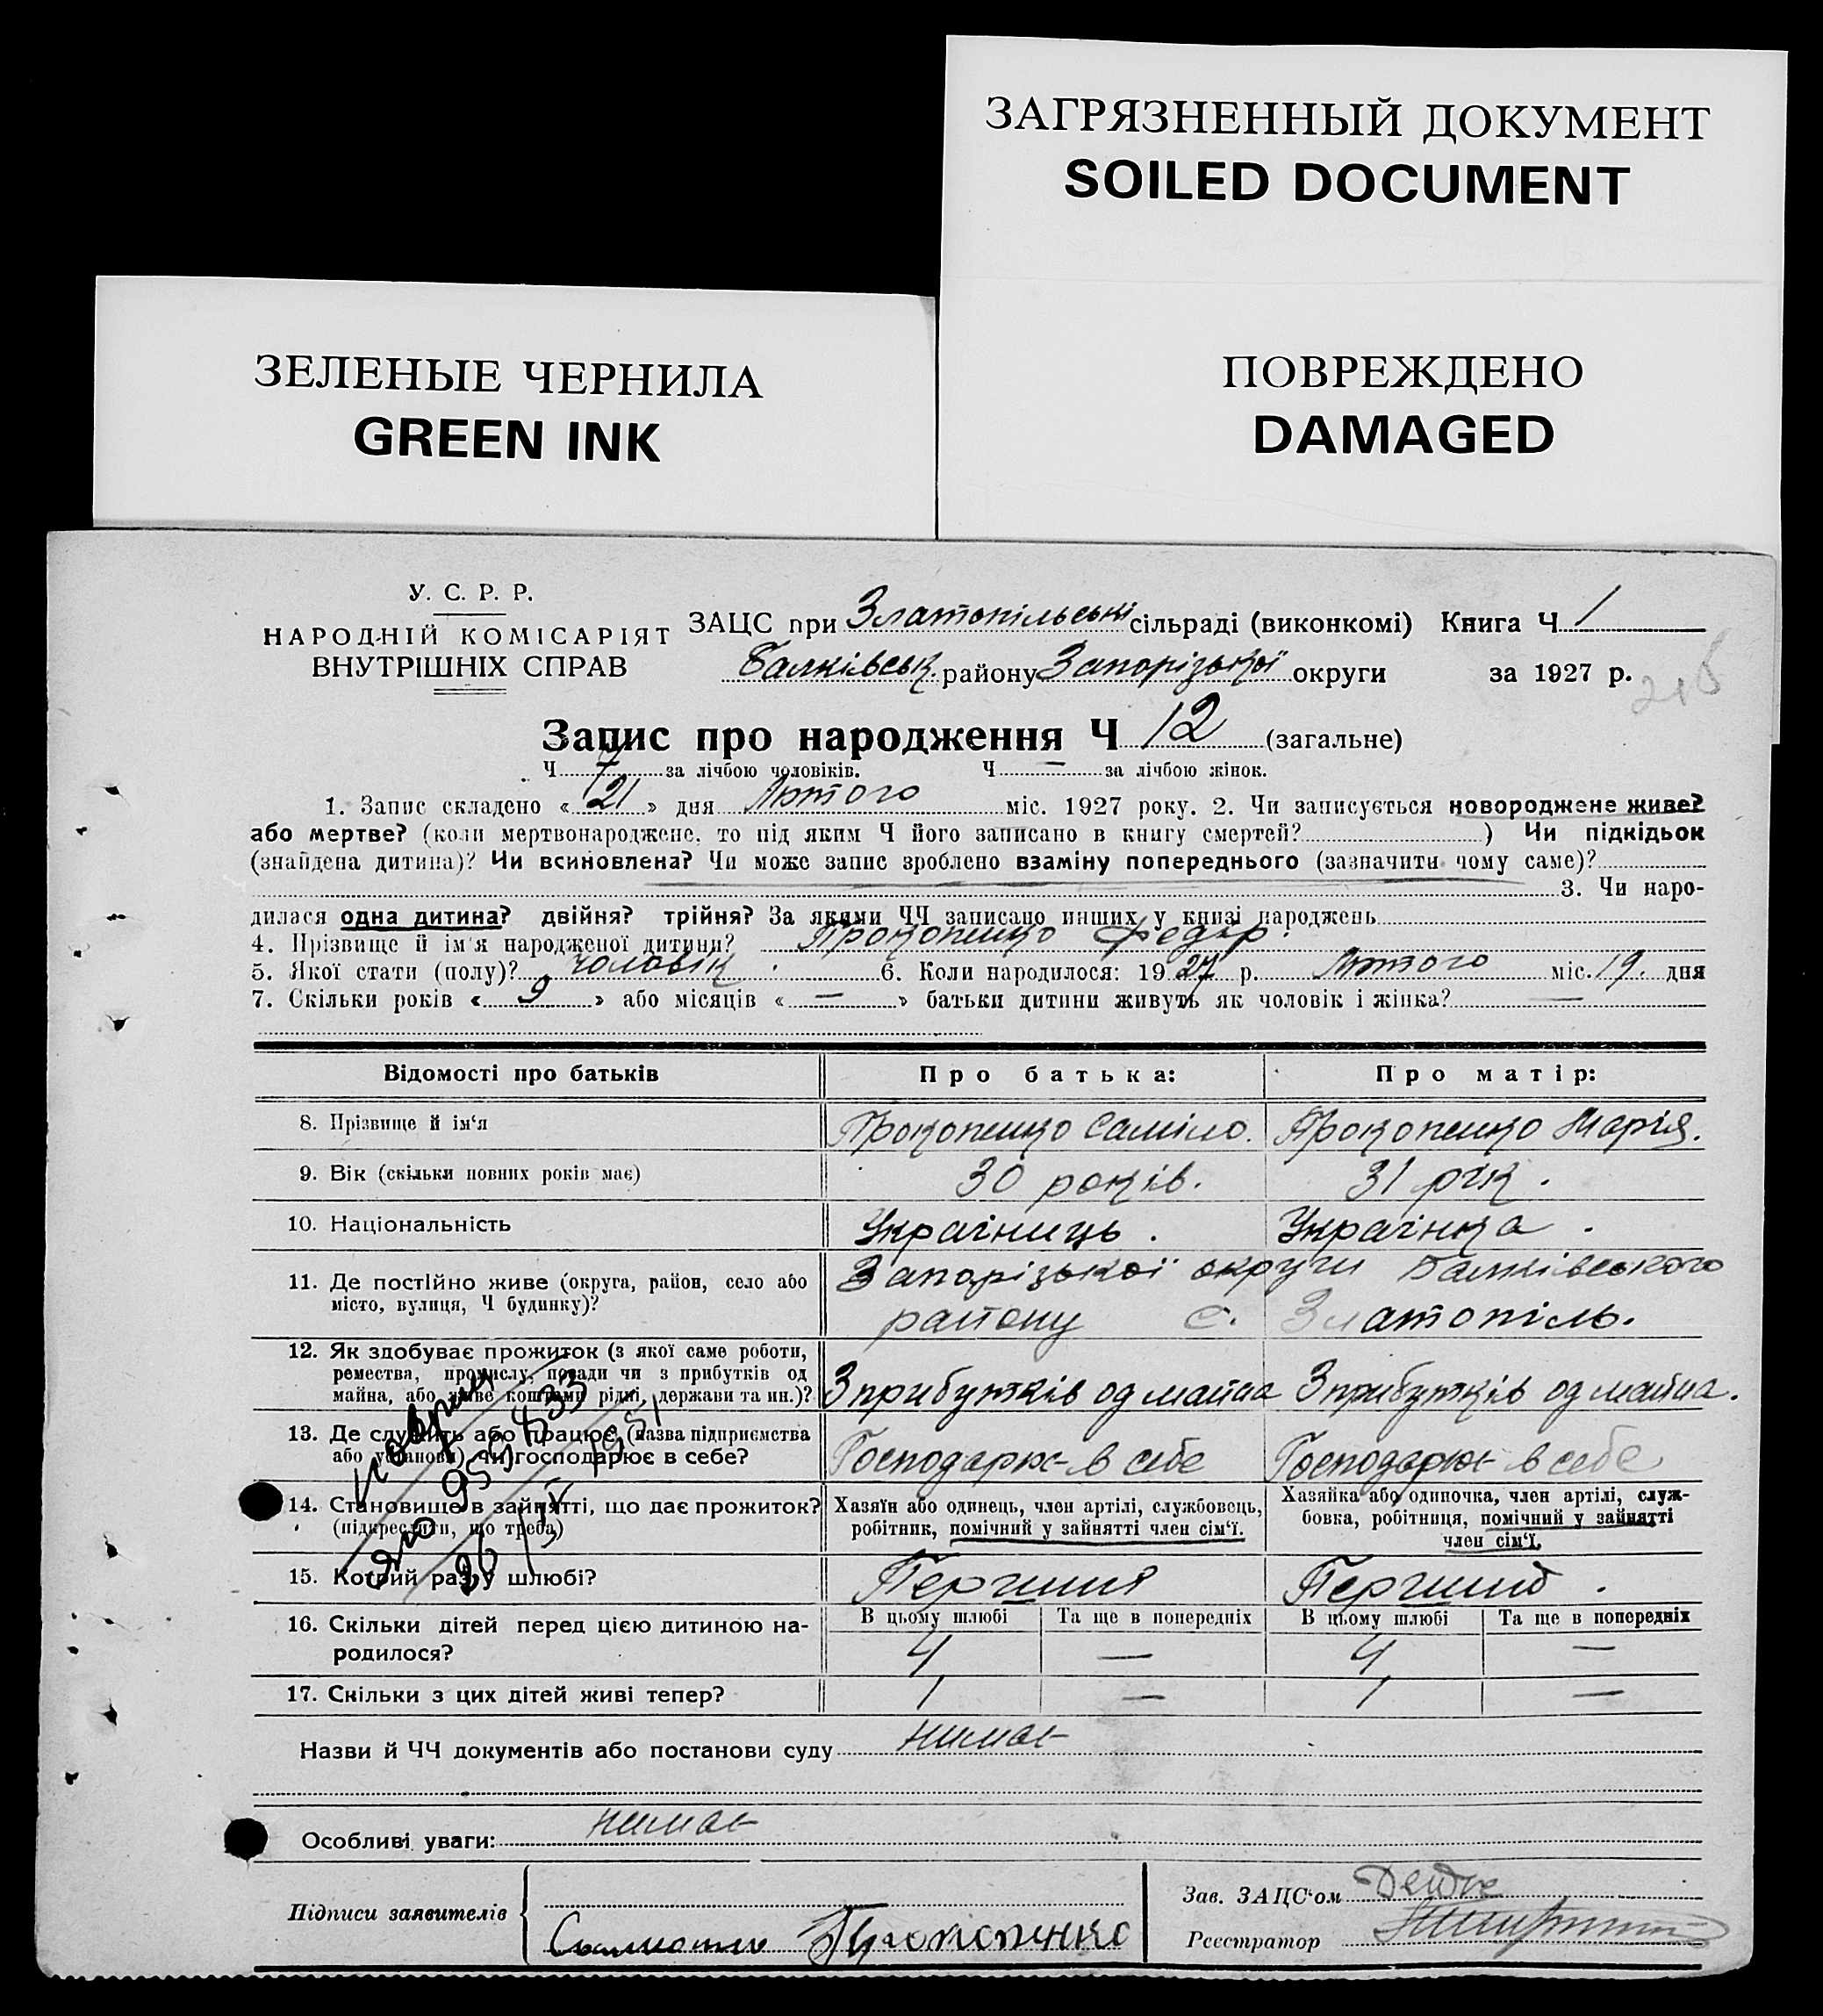 ЗАГРЯЗНЕННЫЙ ДОКУМЕНТ
SOILED DOCUMENT
ЗЕЛЕНЫЕ ЧЕРНИЛА
GREEN INK
ПОВРЕЖДЕНО
DAMAGED
У. С. Р. Р.
НАРОДНІЙ КОМІСАРІЯТ
ВНУТРІШНІХ СПРАВ
ЗАЦС при Златопільські сільраді (виконкомі) Книга Ч 1
Балківськ. району Запорізької округи за 1927 р.
Запис про народження Ч 12 (загальне)
Ч 7 за лічбою чоловіків. Ч — за лічбою жінок.
1. Запис складено «21» дня Лютого міс. 1927 року. 2. Чи записується новороджене живе?
або мертве? (коли мертвонароджене, то під яким Ч його записано в книгу смертей? ) Чи підкідьок
(знайдена дитина)? Чи всиновлена? Чи може запис зроблено взаміну попереднього (зазначити чому саме)?
3. Чи наро-
дилася одна дитина? двійня? трійня? За якими ЧЧ записано инших у книзі народжень
4. Прізвище й ім'я народженої дитини? Прокопенко Федір.
5. Якої стати (полу)? чоловік. 6. Коли народилося: 1927 р. Лютого міс. 19. дня
7. Скільки років «9» або місяців «—» батьки дитини живуть як чоловік і жінка? —
Відомості про батьків Про батька: Про матір:
8. Прізвище й ім'я Прокопенко Саміло. Прокопенко Марія.
9. Вік (скільки повних років має) 30 років. 31 рік.
10. Національність Украіниць. Украінка.
11. Де постійно живе (округа, район, село або Запорізької округи Балківського
місто, вулиця, Ч будинку)? району с. Златопіль.
12. Як здобуває прожиток (з якої саме роботи,
ремества, промислу, посади чи з прибутків од
майна, або живе коштами рідні, держави та ин.)? З прибутків од майна З прибутків од майна.
13. Де служить або працює (назва підприємства
або установи), чи господарює в себе? Господарює в себе Господарює в себе
14. Становище в зайнятті, що дає прожиток? Хазяїн або одинець, член артілі, службовець, Хазяйка або одиночка, член артілі, служ-
(підкреслити, що треба) робітник, помічний у зайнятті член сім'ї. бовка, робітниця, помічний у зайнятті
член сім'ї.
26/IV 1951
15. Котрий раз у шлюбі? Першия Перший.
16. Скільки дітей перед цією дитиною на- В цьому шлюбі Та ще в попередніх В цьому шлюбі Та ще в попередніх
родилося? 4 — 4 —
17. Скільки з цих дітей живі тепер? 1 — 1 —
Назви й ЧЧ документів або постанови суду нимає
Особливі уваги: нимає
Підписи заявителів Прокопенко
Зав. ЗАЦС'ом
Реєстратор